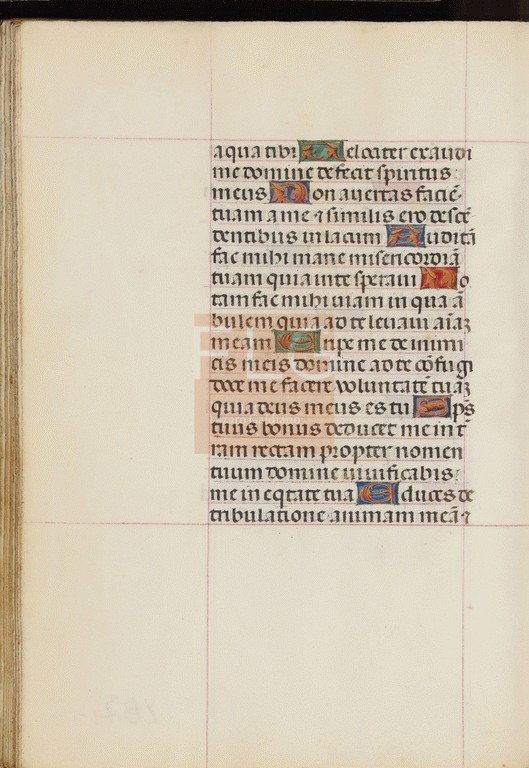 aqua tibi Velociter exaudi
me domine defecit spiritus
meus Non avertas facie᷃
tuam a me ⁊ similis ero desce᷃
dentibus in lacum Auditā
fac mihi mane misericordiā
tuam quia in te speravi No
tam fac mihi viam in qua ā
bulem quia ad te levavi aīaꝫ
meam Eripe me de inimi
cis meis domine ad te cōfugi
doce me facere voluntatē tuaꝫ
quia deus meus es tu Sp̄s
tuus bonus deducet me in t̄
ram rectam propter nomen
tuum domine vivificabis
me in eq̄tate tua Educes de
tribulatione animam meā ⁊
FLG